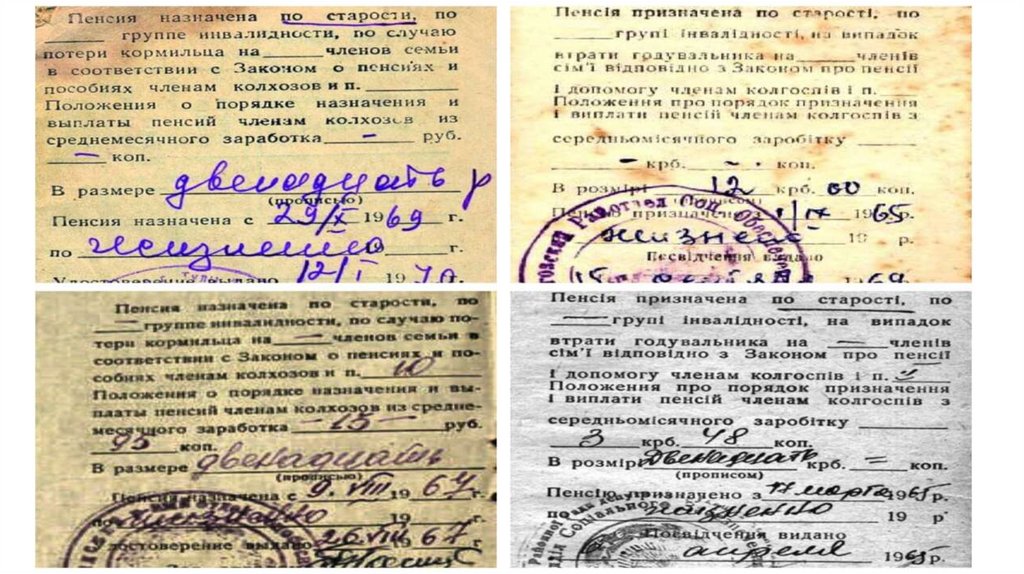 Пенсия назначена по старости, по
группе инвалидности, по случаю
потери кормильца на членов семьи
в соответствии с Законом о пенсиях и
пособиях членам колхозов и п.
Положения о порядке назначения и
выплаты пенсий членам колхозов из
среднемесячного заработка — руб.
— коп.
В размере двенадцать р
(прописью)
Пенсия назначена с 29/X 1969 г.
по жизненно 19 г.
Удостоверение выдано 12/I 1970.
Пенсія призначена по старості, по
групі інвалідності, на випадок
втрати годувальника на членів
сім'ї відповідно з Законом про пенсії
і допомогу членам колгоспів і п.
Положення про порядок призначення
і виплати пенсій членам колгоспів з
середньомісячного заробітку
- крб. - . коп.
В розмірі 12 крб. 00 коп.
(прописом)
призначено 1965р.
жизнено 19 р.
Посвідчення видано
Пенсия назначена по старости, по
— группе инвалидности, по случаю по-
тери кормильца на — членов семьи в
соответствии с Законом о пенсиях и по-
собиях членам колхозов и п. 10
Положения о порядке назначения и вы-
платы пенсий членам колхозов из средне-
месячного заработка -15- руб.
95 коп.
В размере двенадцать
(прописью)
Пенсия назначена с 9.VIII 1967 г.
по жизненно 19 г.
достоверение выдано 26.VIII 67 г.
Пенсія призначена по старості, по
— групі інвалідності, на випадок
втрати годувальника на — членів
сім'ї відповідно з Законом про пенсії
і допомогу членам колгоспів і п.
Положення про порядок призначення
і виплати пенсій членам колгоспів з
середньомісячного заробітку
3 крб. 48 коп.
В розмірі двенадцать крб. = коп.
(прописом)
Пенсію призначено з 17 марта 1965р.
по жизненно 19 р
Посвідчення видано
апреля 1965р.